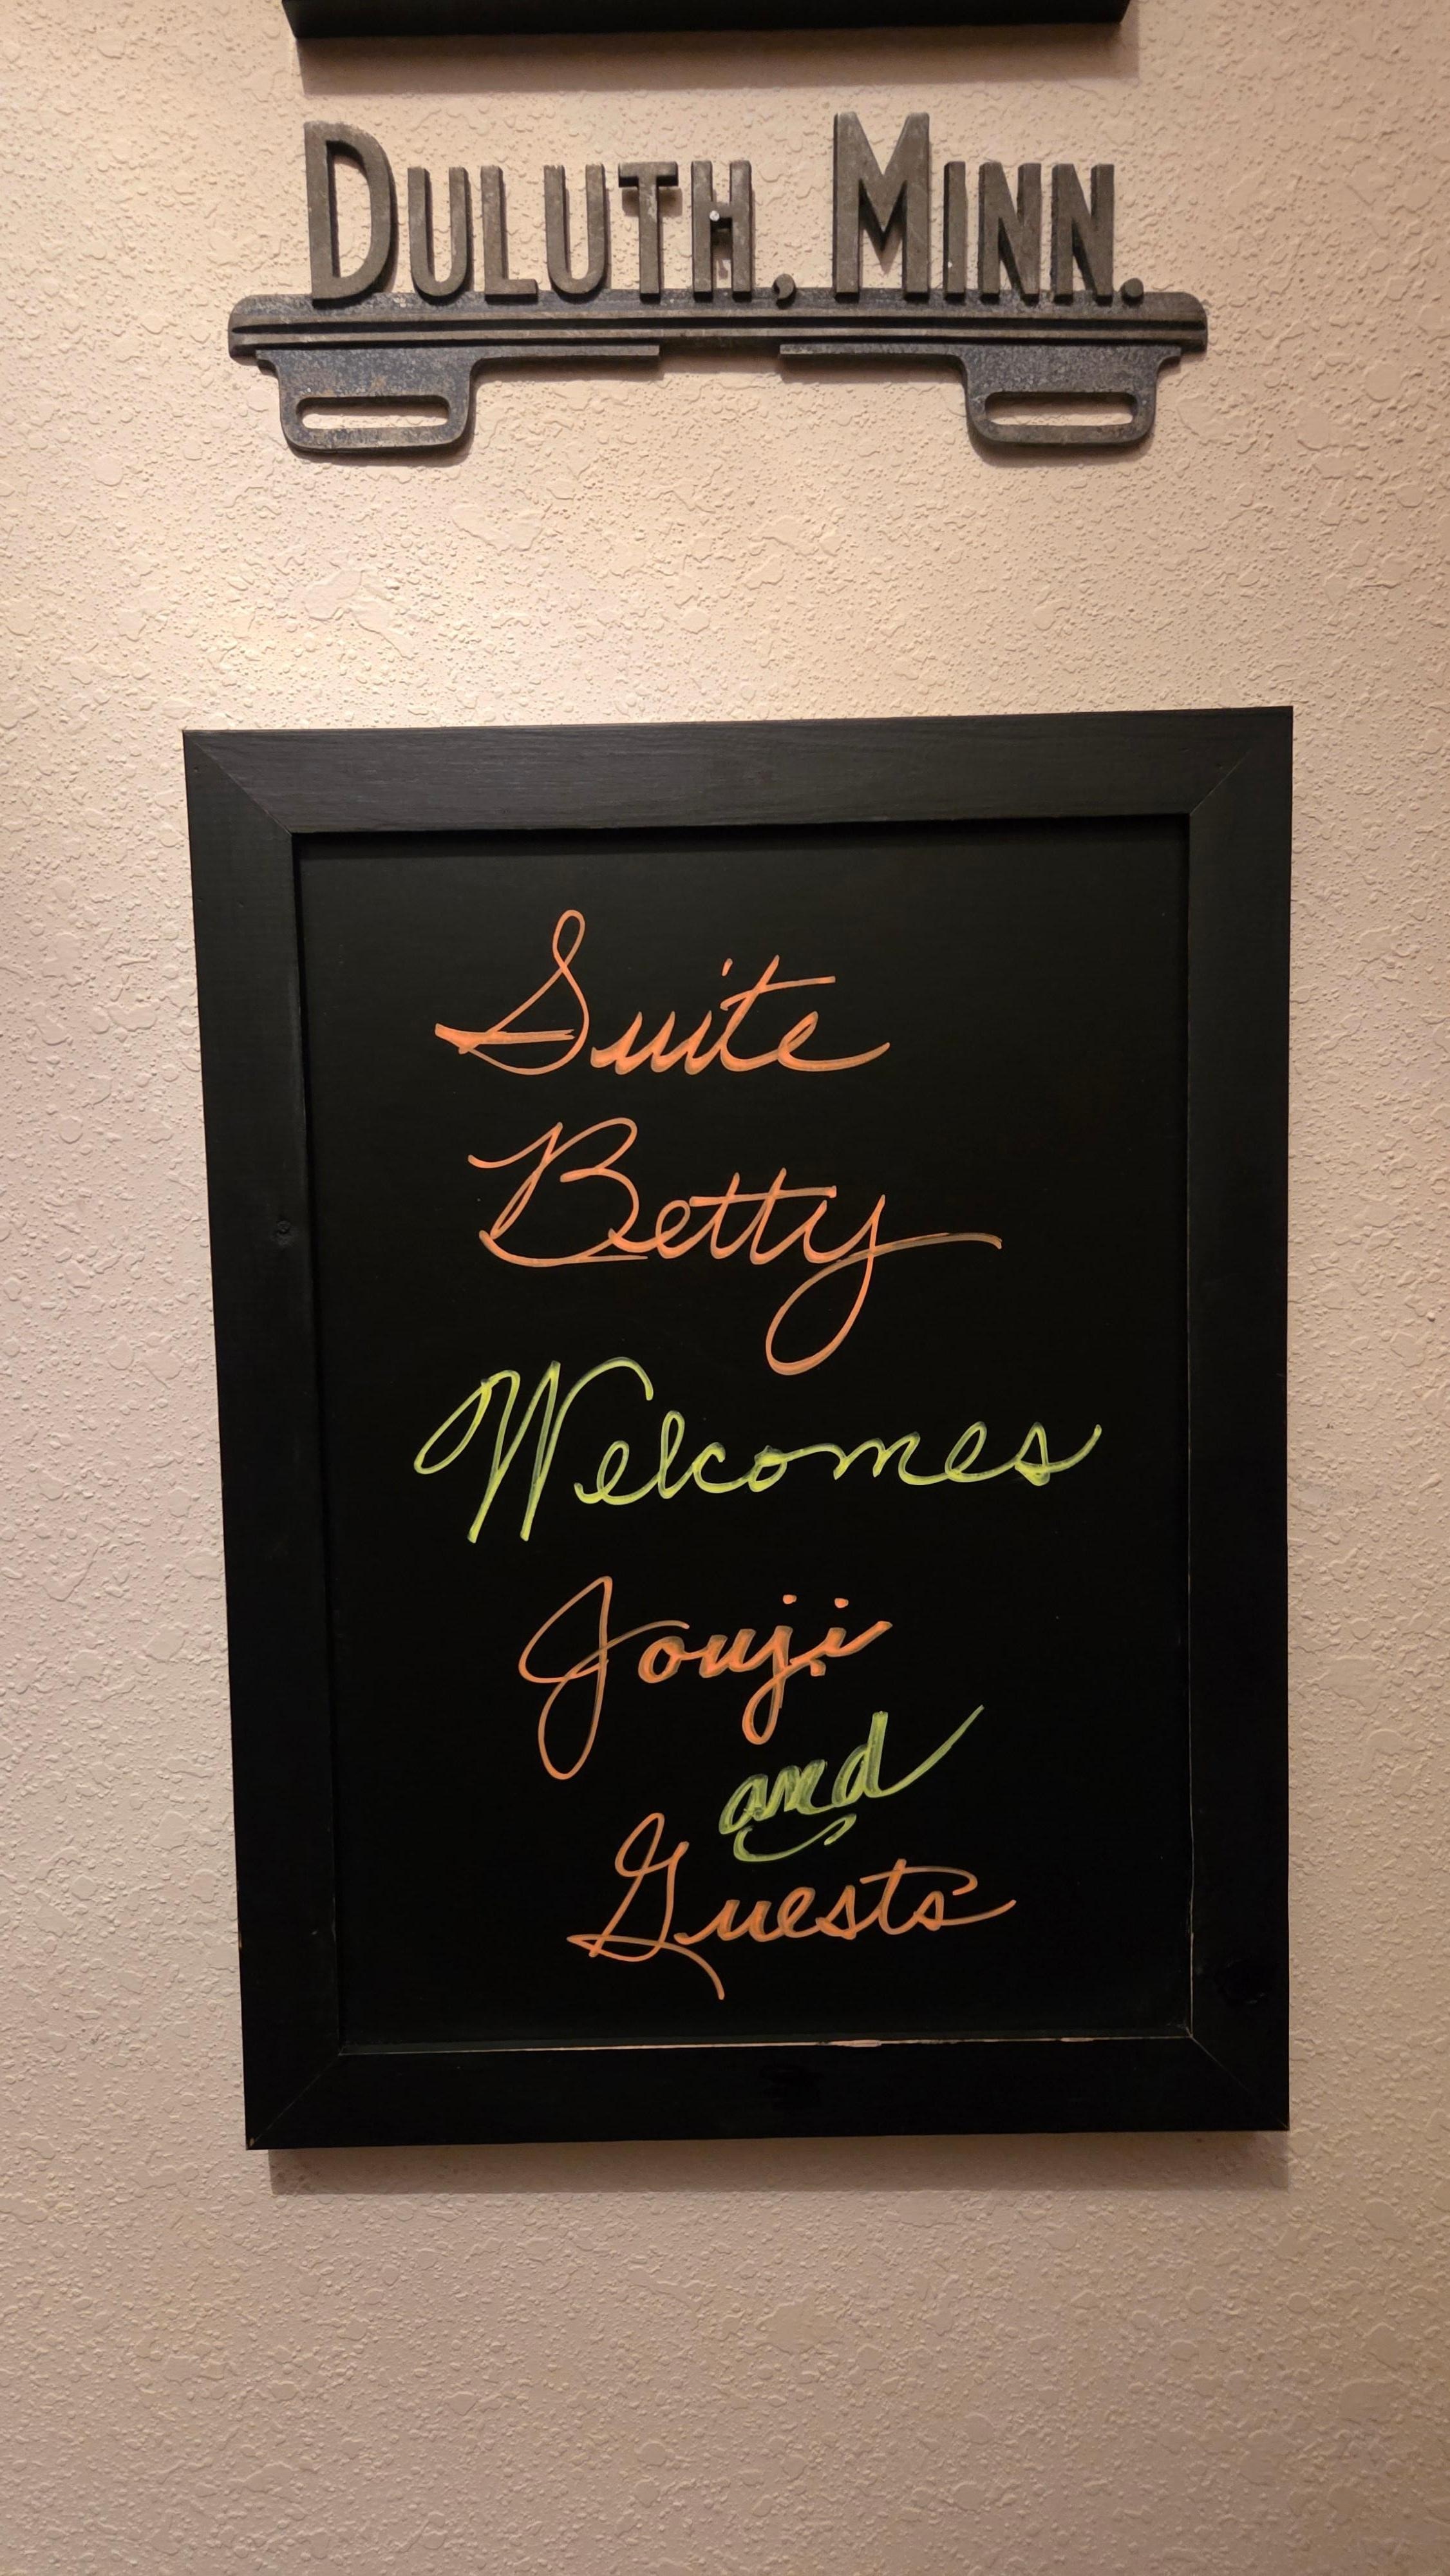 DULUTH, MINN.
Suite
Betty
Welcomes
Jouji
and
Guests